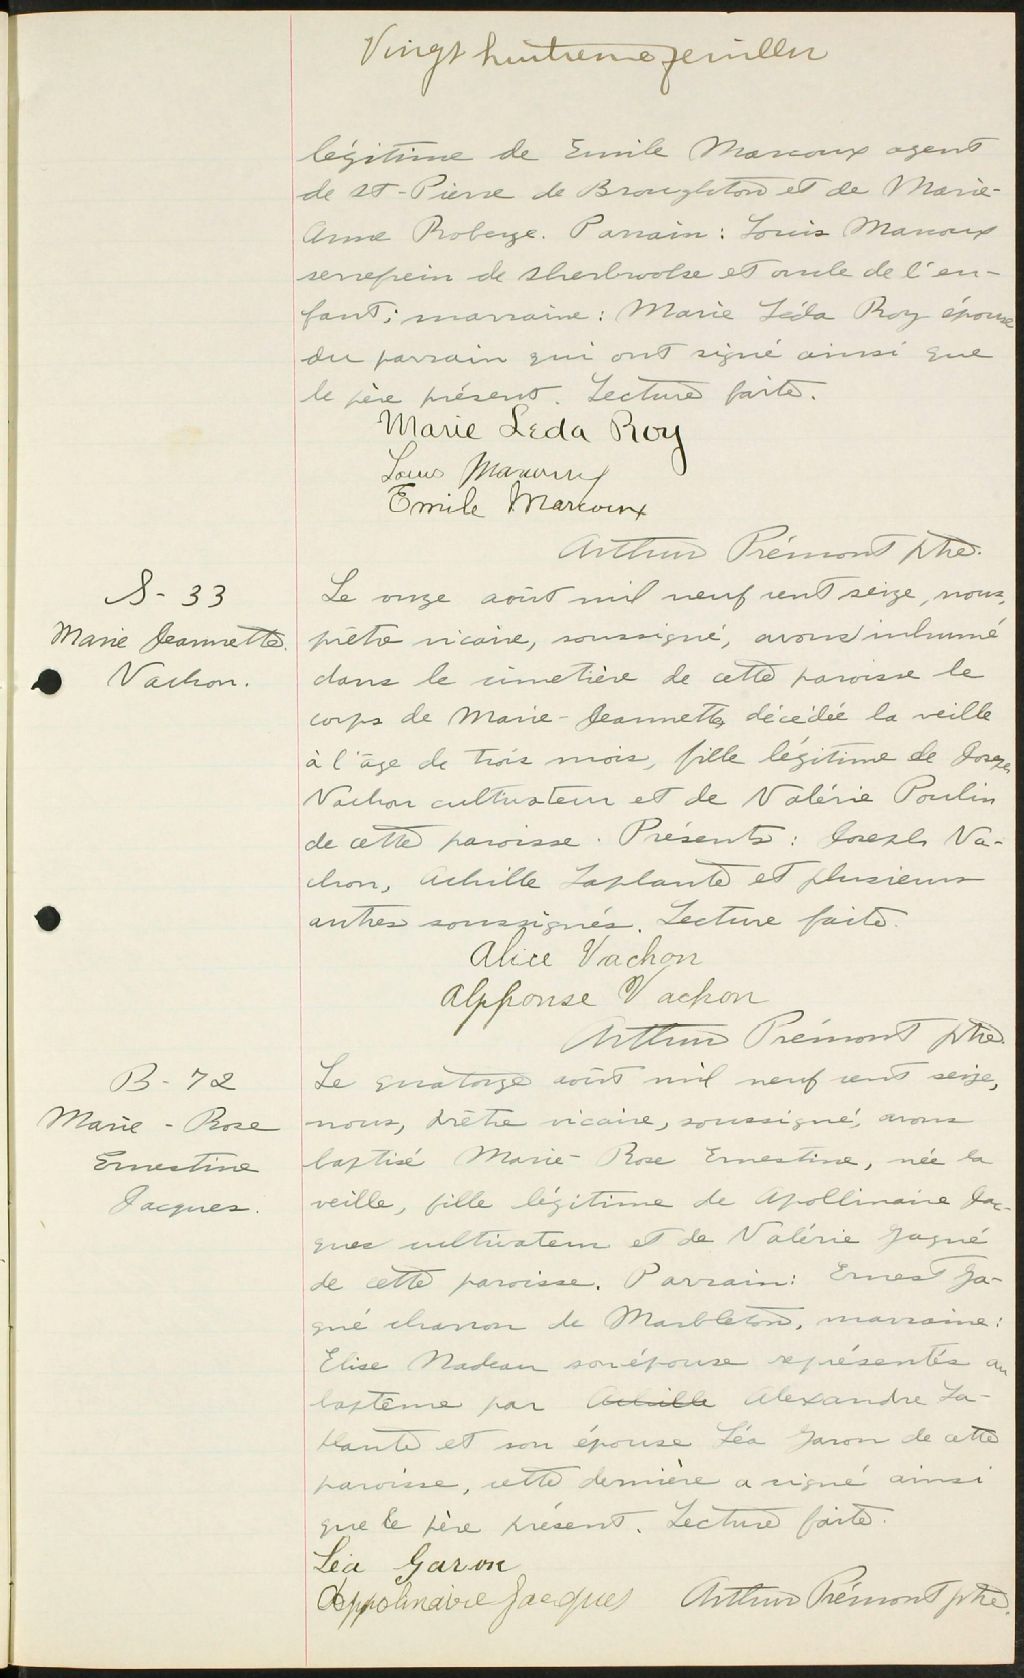 Vingt huitieme feuillet
légitime de Emile Marcoux agent
de St-Pierre de Broughton et de Marie-
Anne Roberge. Parrain: Louis Marcoux
serrefrein de Sherbrooke et oncle de l'en-
fant; marraine: Marie Léda Roy épouse
du parrain qui ont signé ainsi que
le père présent. Lecture faite.
Marie Leda Roy
Louis Marcoux
Emile Marcoux
Arthur Prémont ptre.
S - 33
Marie Jeannette
Vachon.
Le onze août mil neuf cent seize, nous,
prêtre vicaire, soussigné, avons inhumé
dans le cimetière de cette paroisse le
corps de Marie-Jeannette, décédée la veille
à l'âge de trois mois, fille légitime de Joseph
Vachon cultivateur et de Valérie Poulin
de cette paroisse. Présents: Joseph Va-
chon, Achille Laplante et plusieurs
autres soussignés. Lecture faite.
Alice Vachon
Alphonse Vachon
Arthur Prémont ptre.
B - 72
Marie - Rose
Ernestine
Jacques.
Le quatorze août mil neuf cent seize,
nous, prêtre vicaire, soussigné, avons
baptisé Marie-Rose Ernestine, née la
veille, fille légitime de Apollinaire Jac-
ques cultivateur et de Valérie Gagné
de cette paroisse. Parrain: Ernest Ga-
gné charron de Marbleton, marraine:
Elise Nadeau son épouse représentés au
baptême par Achille Alexandre La-
plante et son épouse Léa Garon de cette
paroisse, cette dernière a signé ainsi
que le père présent. Lecture faite.
Léa Garon
Appolinaire Jacques Arthur Prémont ptre.